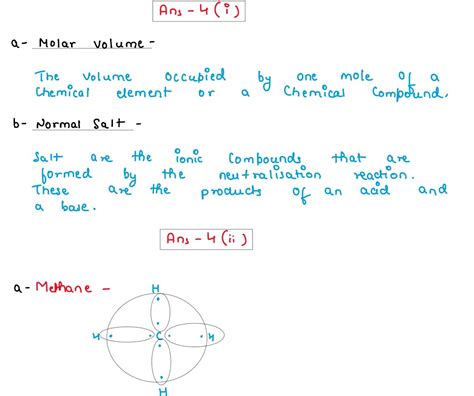 Ans - 4 (i)
a - Molar Volume -
The Volume Occupied by one mole Of a
Chemical element or a Chemical Compound.
b - Normal Salt -
Salt are the ionic Compounds that are
formed by the neutralisation reaction.
These are the products of an acid and
a base.
Ans - 4 (ii)
a - Methane -
H
H C H
H